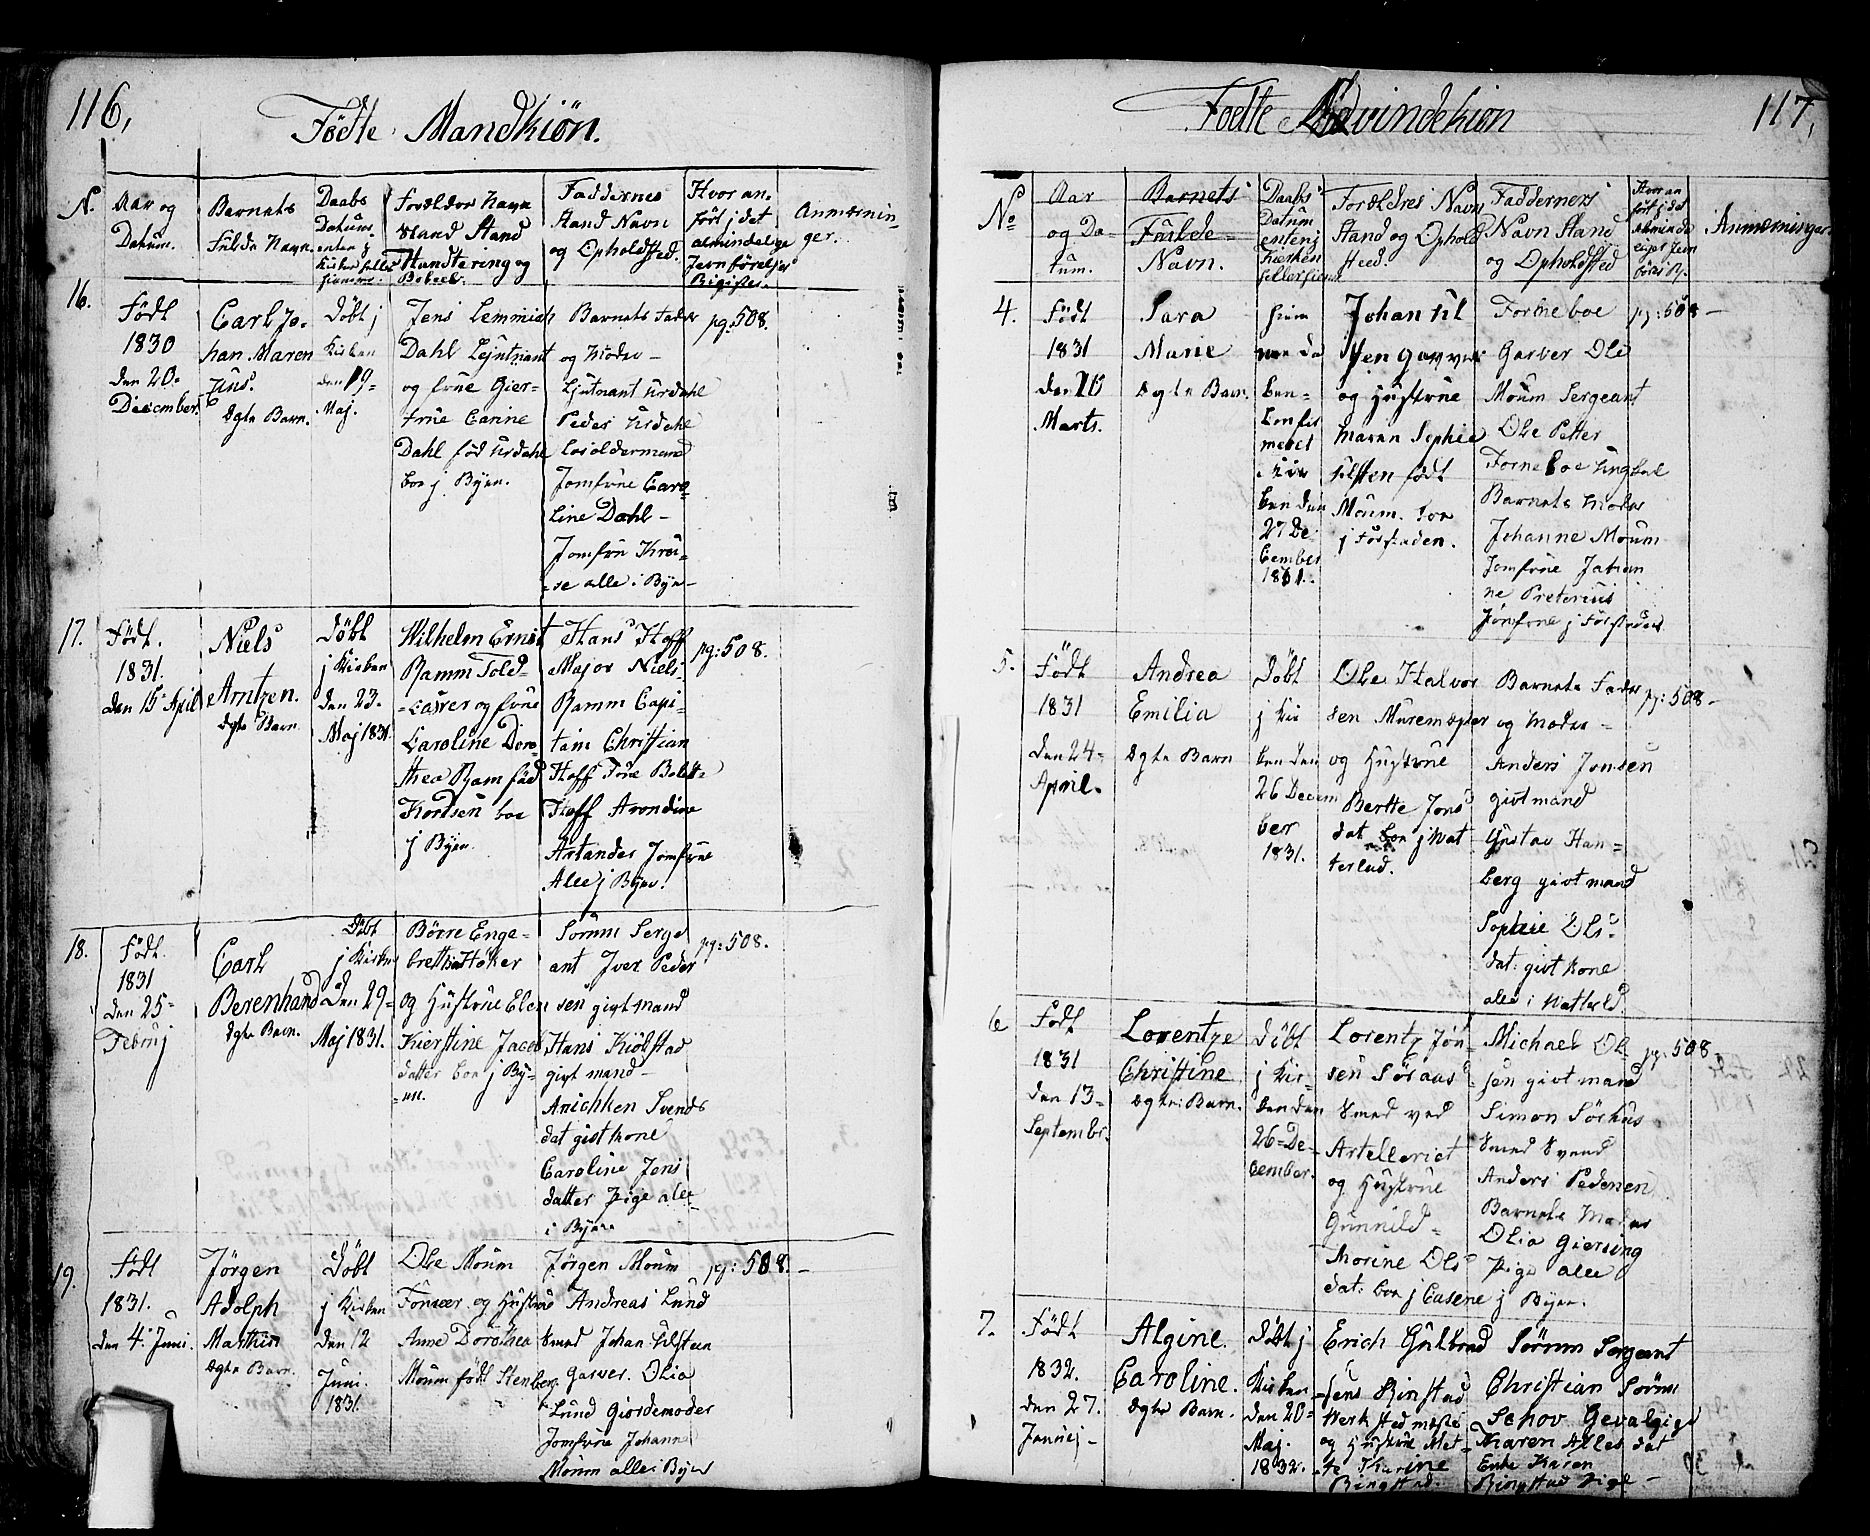 116,
Födte Mandkiön.
N.
Aar og
Datum.
Barnets
fulde Navn.
Daabs
Datum
enten j
Kirke heller
hiemme.
Forældes Navn
Stand
Handtering og
Bobæl.
Faddernes
Stand Navn
og Opholdsted.
Hvor an-
fört j det
almindelige
Jevnförelses
Rigister.
Anmærnin
ger.
16.
Födt
1830
den 20-
December.
Carl Jo-
han Maren
Ægte Barn.
Döbt j
Kirken
den 19-
Maj.
Jens Lemmich
Dahl Lejtnant
og frue Gier-
true Carine
Dahl föd Urdahl
boe j Byen.
Barnets Fader
og Moder -
Ljutnant Urdahl
Peder Urdahl
Jomfrue Caro-
line Dahl -
Jomfrue Kru-
se alle i Byen -
pg: 508.
17.
Födt.
1831.
den 15 April
Niels
Arntzen.
Ægte Barn
Döbt
j Kirken
den 23-
Maj 1831.
Wilhelm Ernst
Ramm Told-
-casser og frue
Caroline Doro-
thea Ram föd
Kordsen boe
j Byen.
Hans Hoff
Major Niels
Ramm Capi-
tain Christian
Hoff
Hoff
Jomfrue
Alle j Byen.
pg: 508.
18.
Födt.
1831
den 25-
Februj
Carl
Berenhand
Ægte Barn.
Döbt
j Kirken
den 29-
Maj 1831.
Börre Enge-
bretten Höker
og Hustrue Elen
Kierstine Jacob
datter boe j By-
-en.
Sörum Serge
ant Iver Peder
sen givt mand
Hans Kiölstad
givt mand -
Anichken Svends
dat givt kone
Caroline Jens
datter Pige alle
i Byen
pg: 508.
19.
Födt
1831.
den 4de Juni.
Jörgen
Adolph
Mathin
Ægte Barn.
Döbt
j Kirken
den 12
Juni.
1831.
Ole Moum
og Hustrue
Anne Dorothea
Moum födt Stenberg
Jörgen Moum
Andreas Lund
Smed Johan Tilsteen
Garver. Olia
Lund Giordemoder
Jomfrue Johanne
Moum alle i Byen
pg: 508. -
117,
Födte Qvindekiön
No
Aar
og Da-
tum.
Barnets
Fulde
Navn.
Daabs
Datum
enten j
Kirken
heller hiem
Forældres Navn
Stand og Ophold
steed.
Faddernes
Navn Stand
og Opholdsted
Hvor an
fört j det
alminde
liges Jevn
föres R.
Anmærninger
4.
Födt
1831
den 16
Marts.
Sara
Marie
Ægte Barn.
hiem
me dö
ben-
Confir
meret
i Kir
ken den
27 De
cember
1831.
Johan til
sten Garver
og Hustrue
Maren Sophie
tilsten födt
Moum. boe
j Forstaden.
Forneboe
Garver Ole
Moum Sergeant
Ole Petter
Forneboe Ungkal
Barnets Moder
Johanne Moum
Jomfrue Jabian
ne Pretorius
Jomfrue j Forstaden
pg: 508 -
5.
Födt
1831
den 24-
April.
Andrea
Emilia
Ægte Barn
Döbt
j Kir
ken den
26 Decem
ber
1831.
Ole Halvor
sen Muremester
og Hustrue
Berthe Jens
dat boe j Wat
terlud.
Barnets Fader
og Moder -
Anders Jonsen
givt mand
Gustav Han-
berg givt mand
Sophie Ols-
dat: givt kone
alle i Watterld.
pg: 508 -
6
Födt
1831
den 13-
Septembr.
Lorentze
Christine
Ægte: Barn.
Döbt
j Kir-
ken den
26-De-
cember.
Lorentz Jön
sen Söraas
Smed ved
Artelleriet
og Hustrue
Gunnild-
Marine Ols
dat: boe j Casene
Michael Ol-
sen givt mand
Simon Sörhus
Smed Svend
Anders Pedersen
Barnets Moder
Olia Giersing
Pige alle
j Byen.
pg: 508
7.
Födt
1832.
den 27.
Januej -
Algine.
Caroline.
Ægte Barn.
Döbt j
Kirken
den 20-
Maj.
1832.
Erich Gulbrand
-sens Ringstad
Werksted mester
og Hustrue Met-
te Karine
Ringstad.
Sörum Sergeant
Christian Sörum
Schov Gevalgige
Maren Alles dat
Enke Karen
Ringstad Pige -